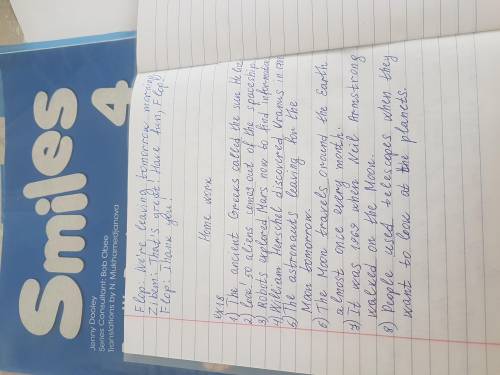 Smiles
4
Jenny Dooley
Series Consultant: Bob Obee
Translations by N. Mukhamedjanova
Flop: We're leaving tomorrow morning
Ziben: That's great! Have fun, Flop!
Flop: Thank you!
Home work
ex18
1) The ancient Greeks called the sun Helios
2) Look! so aliens comes out of the spaceship
3) Robots explored Mars now to find information
4) William Herschel discovered Uranus in 1781
5) The astronauts leaving for the
Moon tomorrow.
6) The Moon travels around the Earth
almost once every month.
7) It was 1969 when Neil Armstrong
walked on the Moon.
8) People used telescopes when they
want to look at the planets.